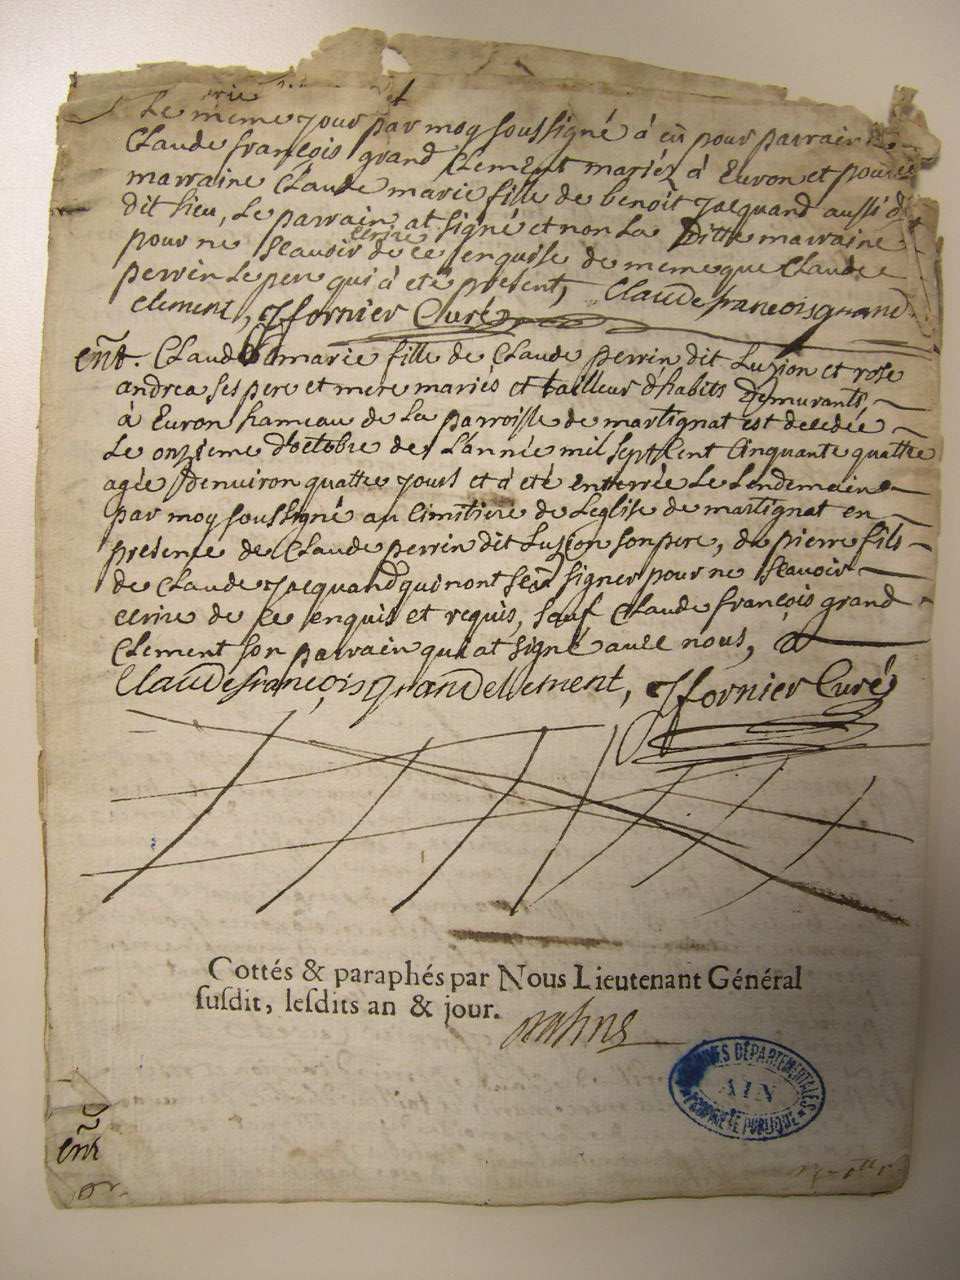 Le meme jour par moy soussigné à eü pour parrain
Claude françois grand Clement mariéz à Euron et pour
marraine Claude marie fille de benoit Jacquand aussi d
dit lieu, Le parrain at signé et non La Ditte marraine
pour ne sçavoir ecrire de ce enquise de meme que Claude
perrin Le pere qui à eté present, Claude francois grand
Clement, Jffornier Curé
ent. Claudà marie fille de Claude perrin dit Luzion et rose
andrea ses pere et mere mariés et tailleur d'habits demurants,
à Euron hameau de La parroisse de martignat est decedée
Le onzieme d'octobre de L'année mil sept Cent Cinquante quattre
agée Denviron quattre jours et à été enterrée Le Lendemain
par moy soussigné au Cimitiere de Leglise de martignat en
presence de Claude perrin dit Luzion son pere, de pierre fils
de Claude Jacquand qui nont signer pour ne sçavoir
ecrire de ce enquis et requis, sauf Claude françois grand
Clement son parrain qui at signé avec nous,
Claude françois grand clement, Jffornier Curé
Cottés & paraphés par Nous Lieutenant Général
susdit, lesdits an & jour.
ARCHIVES DÉPARTEMENTALES
AIN
PROPRIÉTÉ PUBLIQUE
ent